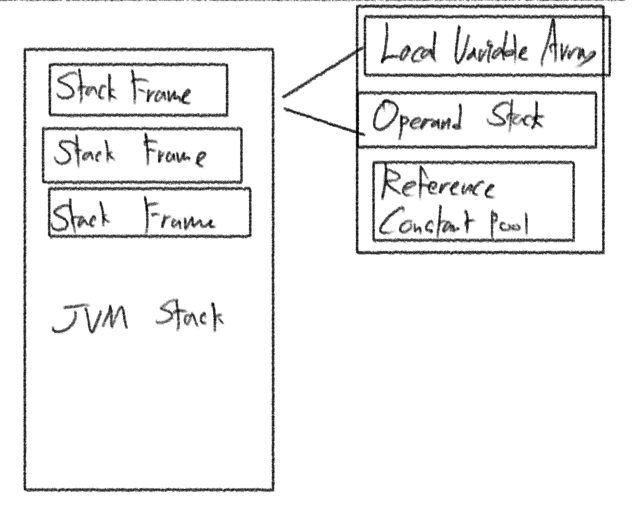 Stack Frame
Stack Frame
Stack Frame
JVM Stack
Local Variable Array
Operand Stack
Reference
Constant Pool